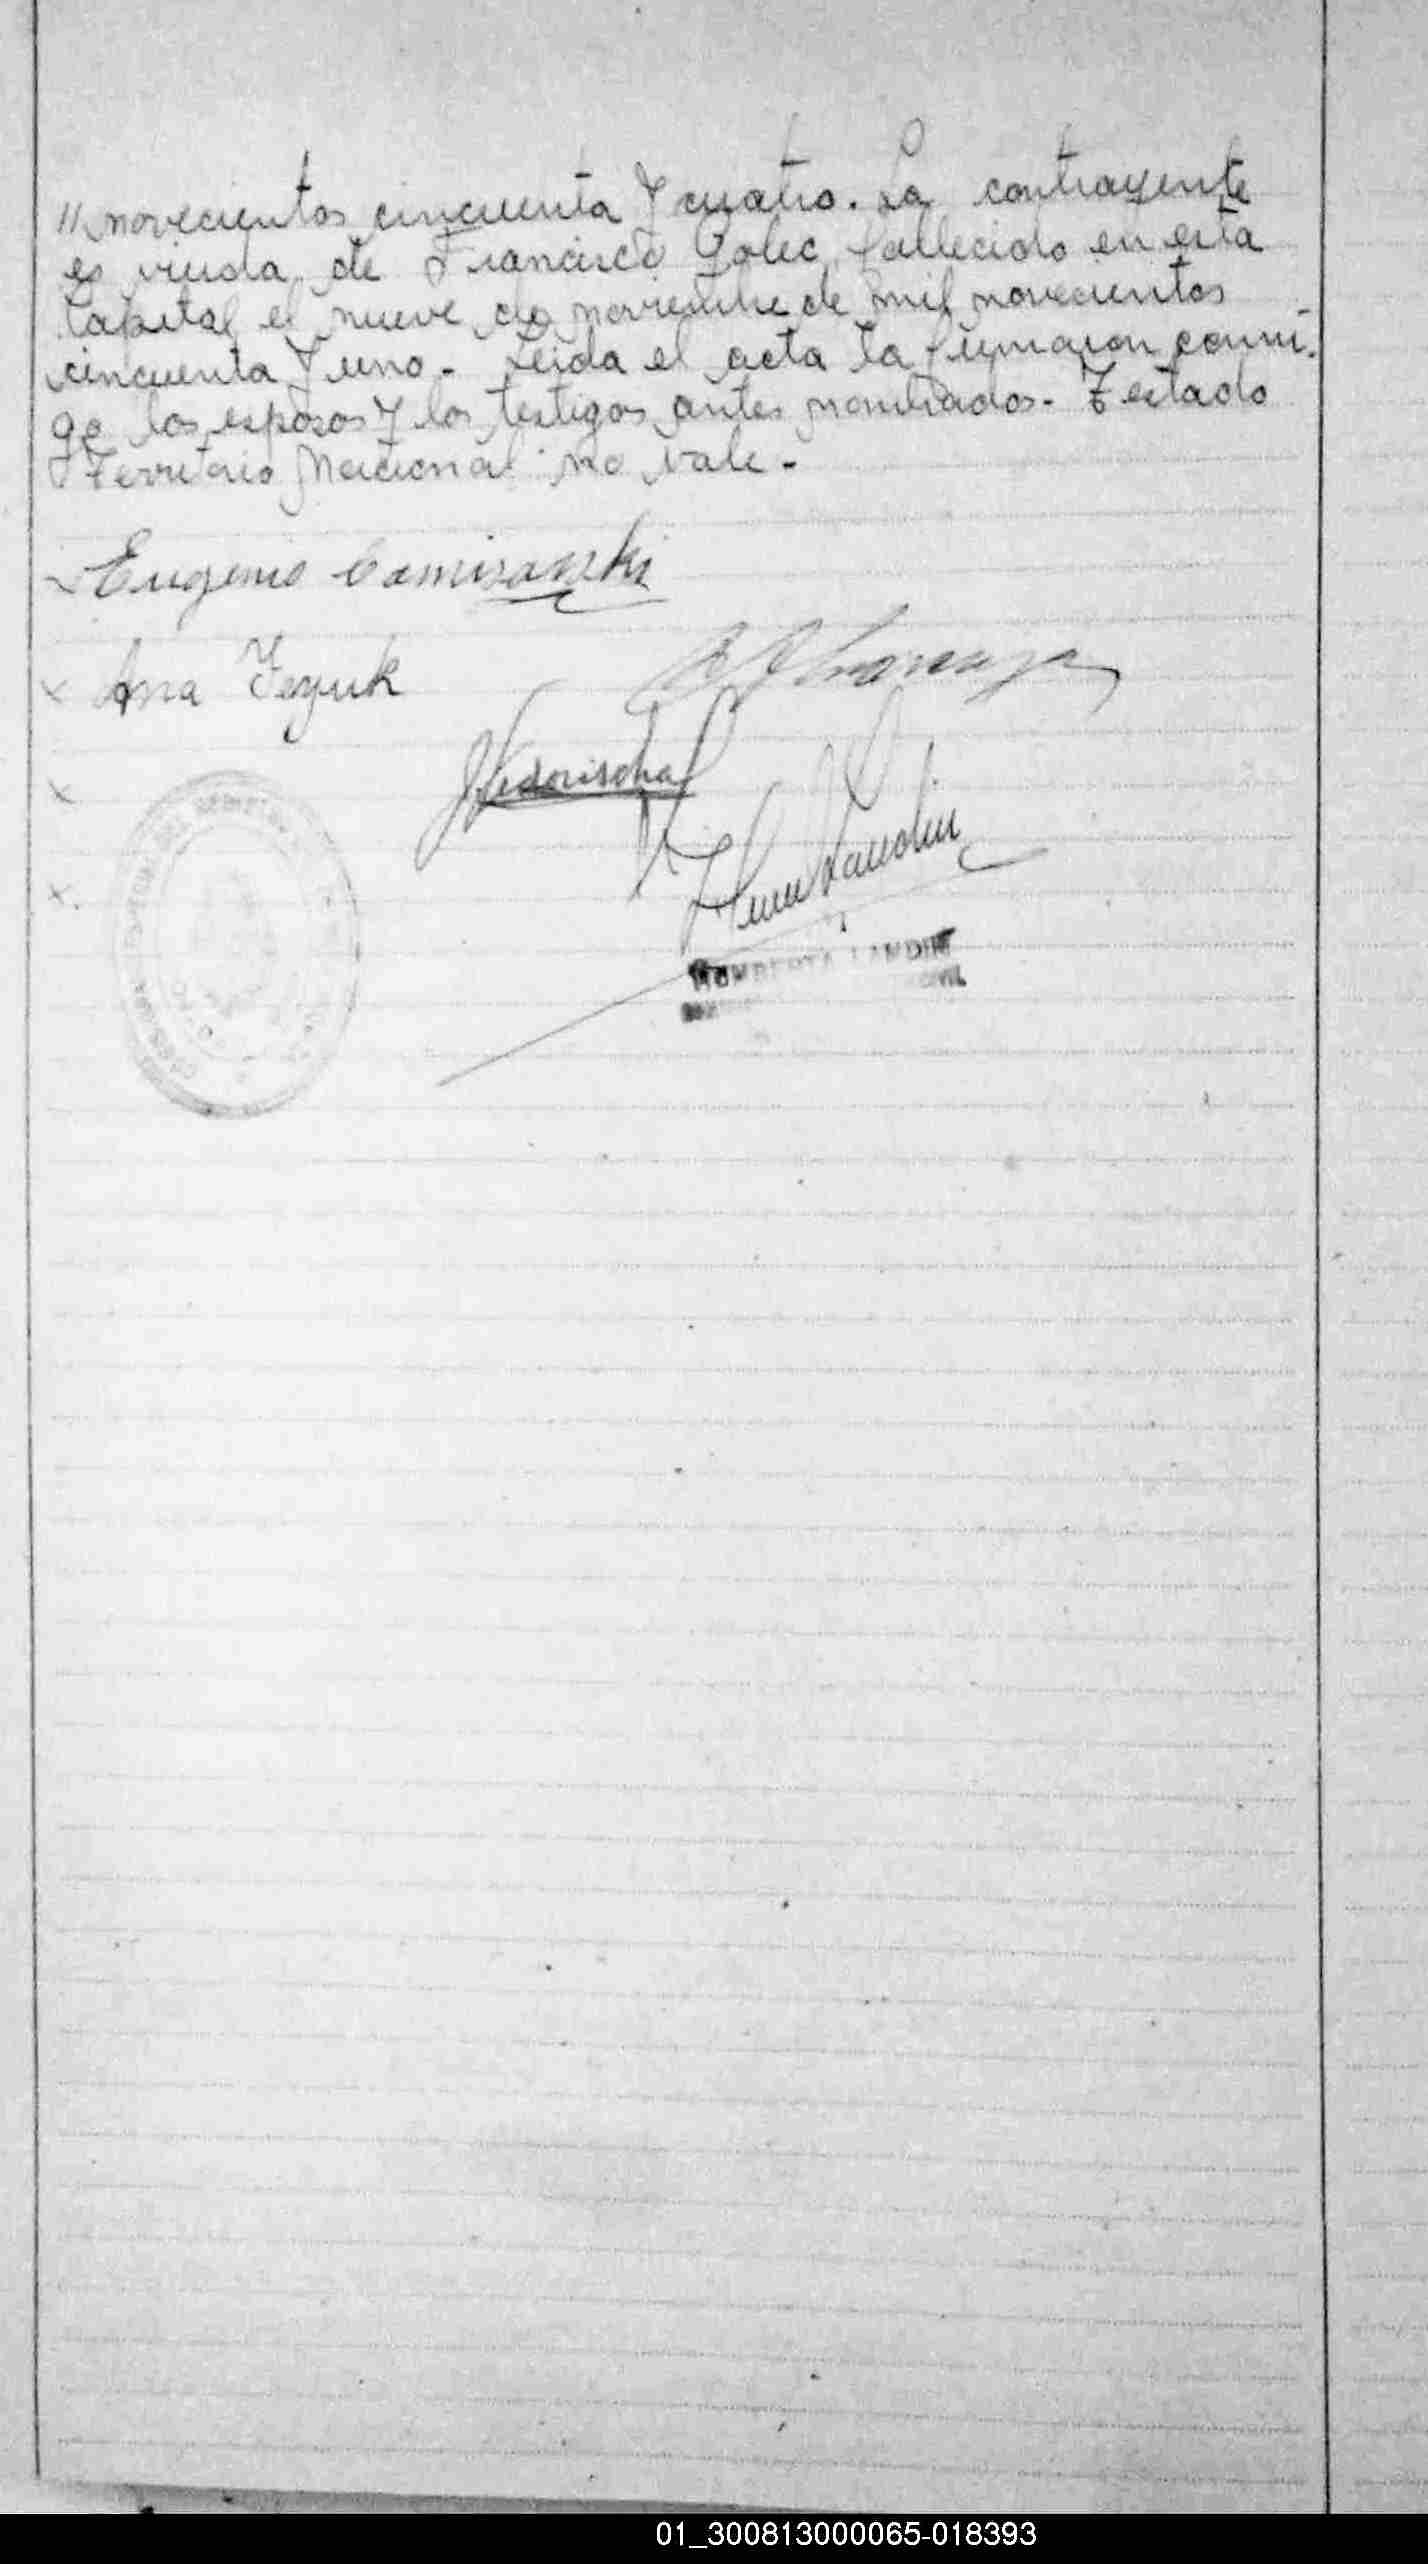 // novecientos cincuenta y cuatro. La contrayente
es viuda de Francisco Golec, fallecido en esta
Capital el nueve de noviembre de mil novecientos
cincuenta y uno. - Leida el acta la firmaron conmi-
go los esposos y los testigos antes nombrados. - Testado
Territorio Nacional no vale. -
Eugenio Comisarski
Ana
HUMBERTO LANDIN
CIVIL
01_300813000065-018393